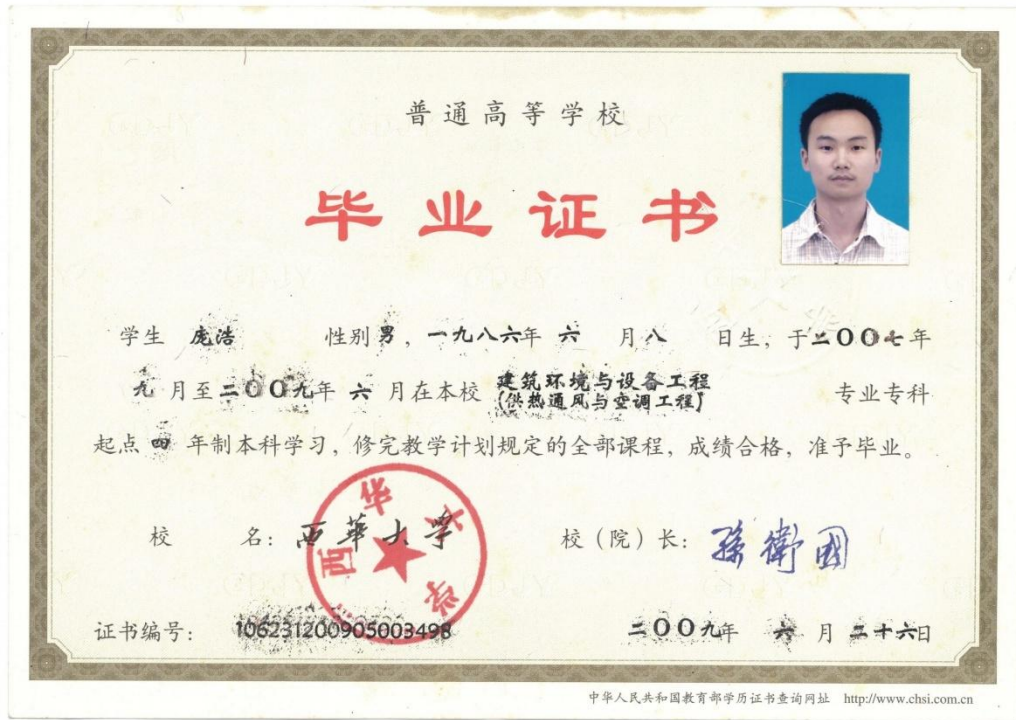 普通高等学校
毕业证书
学生 庞浩 性别 男，一九八六年 六 月 八 日生，于二〇〇七年
九 月至二〇〇九年 六 月在本校 建筑环境与设备工程 专业专科
(供热通风与空调工程)
起点 四 年制本科学习，修完教学计划规定的全部课程，成绩合格，准予毕业。
校 名：西華大学 校（院）长：孫衛國
西华大学
证书编号：106231200905003498 二〇〇九年 六 月 二十六日
中华人民共和国教育部学历证书查询网址 http://www.chsi.com.cn